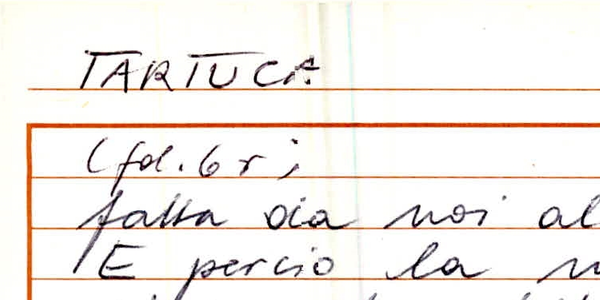 TARTUCA
(fol. 6 r;
fatta da noi al
E perciò la